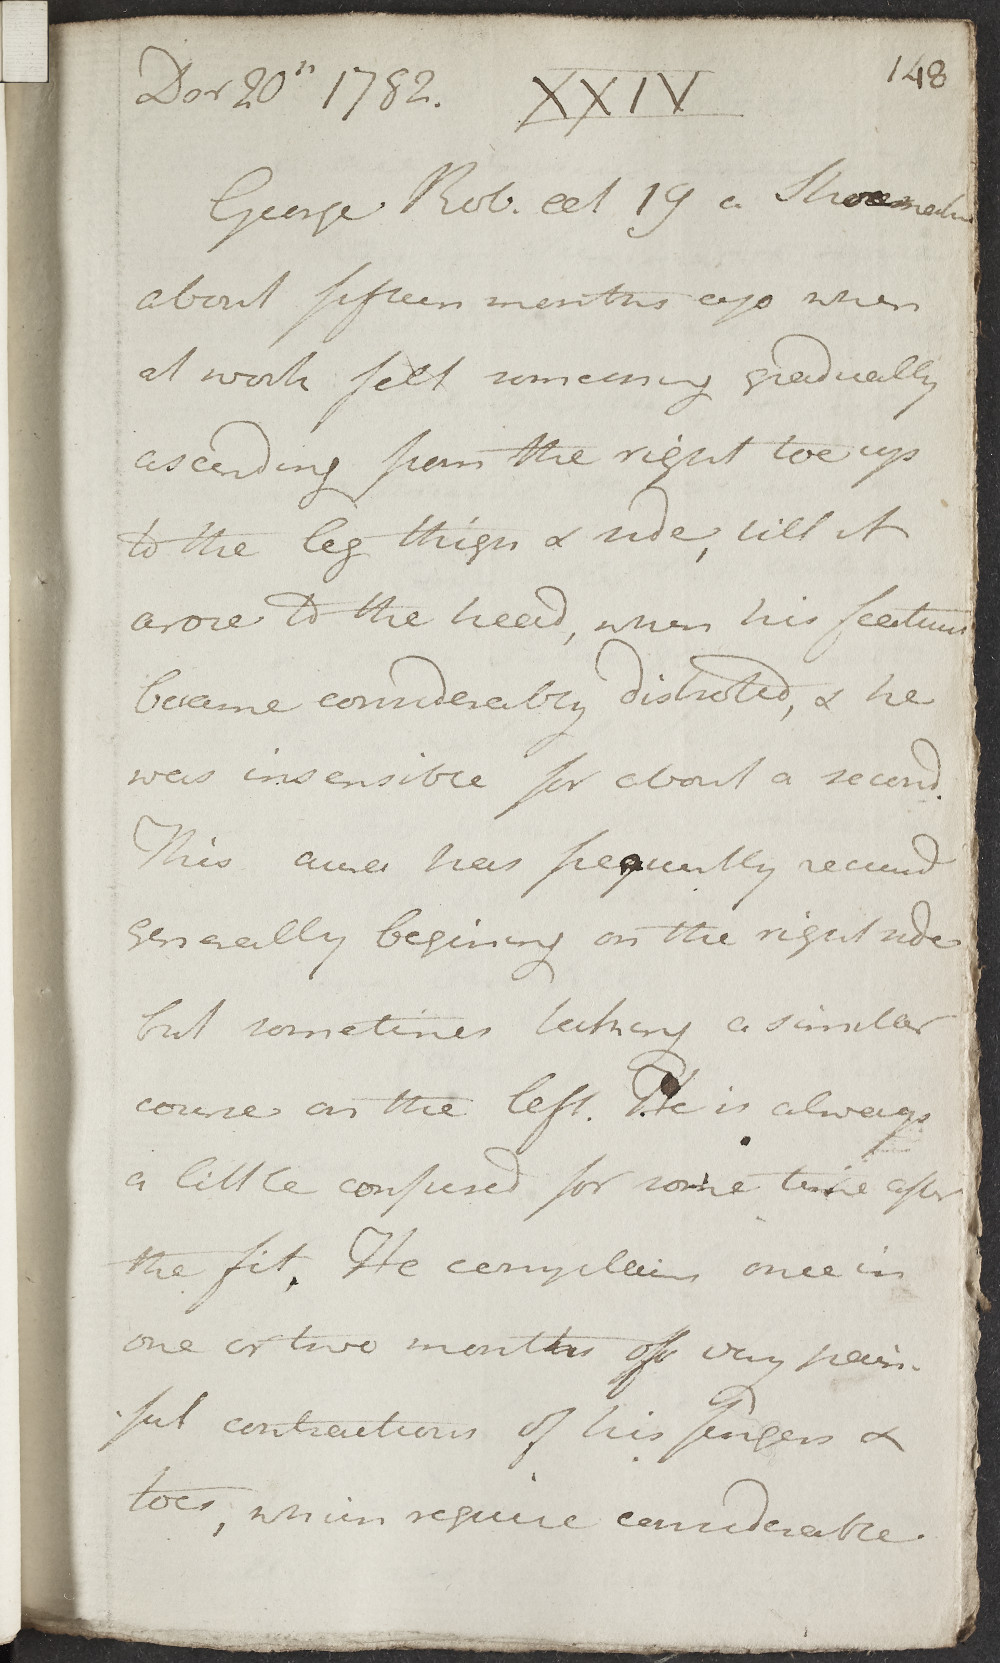 Dor 20th 1782. XXIV 148
George Rob. aet 19 a Shoemaker
about fifteen months ago when
at work felt something gradually
ascending from the right toe up
to the leg thigh & side, till it
arose to the head, when his features
became considerably distroted, & he
was insensible for about a second.
This aura has frequently recurred
generally begining on the right side
but sometimes taking a similar
course on the left. He is always
a little confused for some time after
the fit. He complains once in
one or two months of very pain-
ful contractions of his fingers &
toes, which require considerable